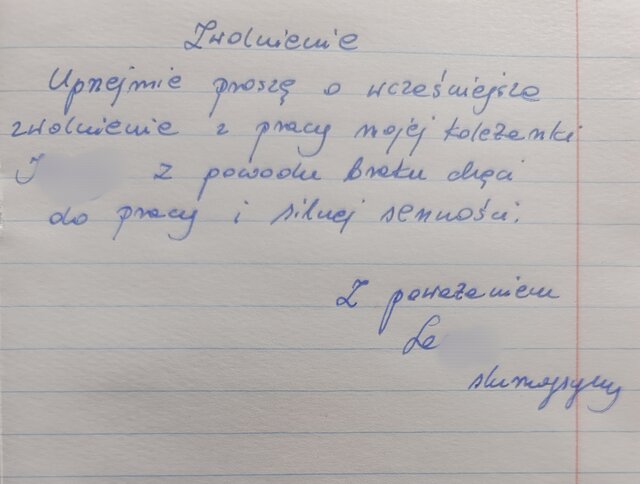 Zwolnienie
Uprzejmie proszę o wcześniejsze
zwolnienie z pracy mojej koleżanki
J Z powodu braku chęci
do pracy i silnej senności.
Z poważaniem
Le